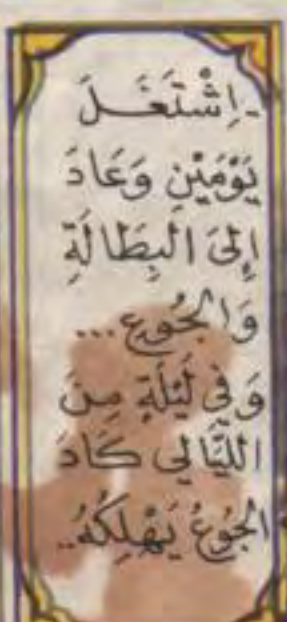 -اِشْتَغَلَ
يَوْمَيْنِ وَعَادَ
إِلىَ الْبِطَالَةِ
وَالجُوعِ...
وَفِي لَيْلَةٍ مِنَ
اللَّيَالِي كَادَ
الجُوعُ يَهْلِكُهُ..